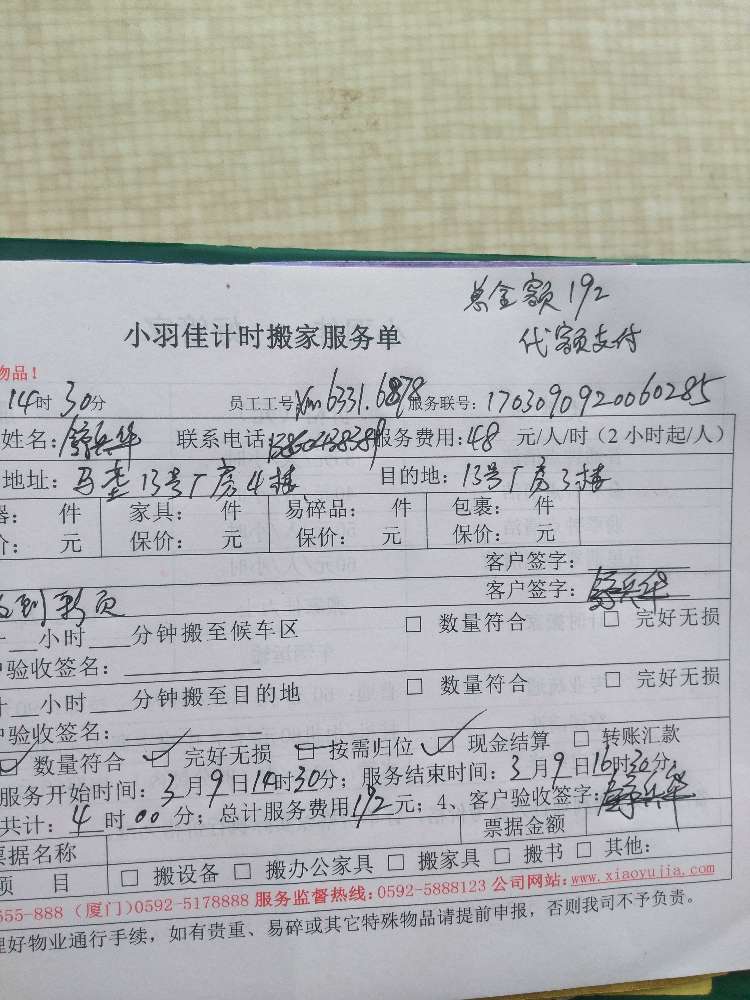 总金额192
代额支付
小羽佳计时搬家服务单
物品！
14时30分 员工工号:Xm6331.6878 服务联号:170309092006 0285
姓名: 联系电话: 服务费用:48 元/人/时（2小时起/人）
地址: 马垄13号厂房4楼 目的地: 13号厂房3楼
器: 件 家具: 件 易碎品: 件 包裹: 件
价: 元 保价: 元 保价: 元 保价: 元
客户签字:
客户签字:
到 页
计 小时 分钟搬至候车区 □ 数量符合 □ 完好无损
户验收签名:
计 小时 分钟搬至目的地 □ 数量符合 □ 完好无损
户验收签名:
□ 数量符合 □ 完好无损 □ 按需归位 □ 现金结算 □ 转账汇款
服务开始时间: 3月9日14时30分; 服务结束时间: 3月9日16时30分,
共计: 4时00分; 总计服务费用192元; 4、客户验收签字:
票据名称 票据金额
项 目 □ 搬设备 □ 搬办公家具 □ 搬家具 □ 搬书 □ 其他:
555-888（厦门）0592-5178888 服务监督热线:0592-5888123 公司网站:www.xiaoyujia.com
理好物业通行手续，如有贵重、易碎或其它特殊物品请提前申报，否则我司不予负责。